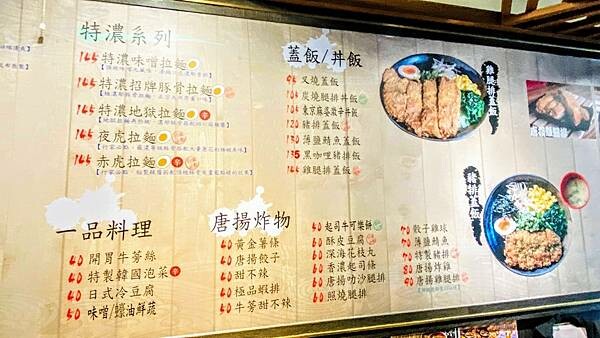 特濃系列
165 特濃味噌拉麵
165 特濃招牌豚骨拉麵
165 特濃地獄拉麵
165 夜虎拉麵
165 赤虎拉麵 辛
蓋飯/丼飯
叉燒蓋飯
炭燒腿排丼飯
東京麻婆激辛丼飯
120 豬排蓋飯
130 薄鹽鯖魚蓋飯
135 黑咖哩豬排飯
雞腿排蓋飯
雞腿排蓋飯
豬排蓋飯
唐揚雞腿排
一品料理
40 開胃牛蒡絲
40 特製韓國泡菜 辛
40 日式冷豆腐
50 味噌/蠔油鮮蔬
唐揚炸物
40 黃金薯條
40 唐揚餃子
40 甜不辣
40 極品蝦排
40 牛蒡甜不辣
50 起司牛可樂餅
60 酥皮豆腐
60 深海花枝丸
60 香濃起司條
60 唐揚叻沙腿排
60 照燒腿排
70 骰子雞球
70 薄鹽鯖魚
70 特製豬排
80 唐揚炸雞
90 唐揚雞腿排